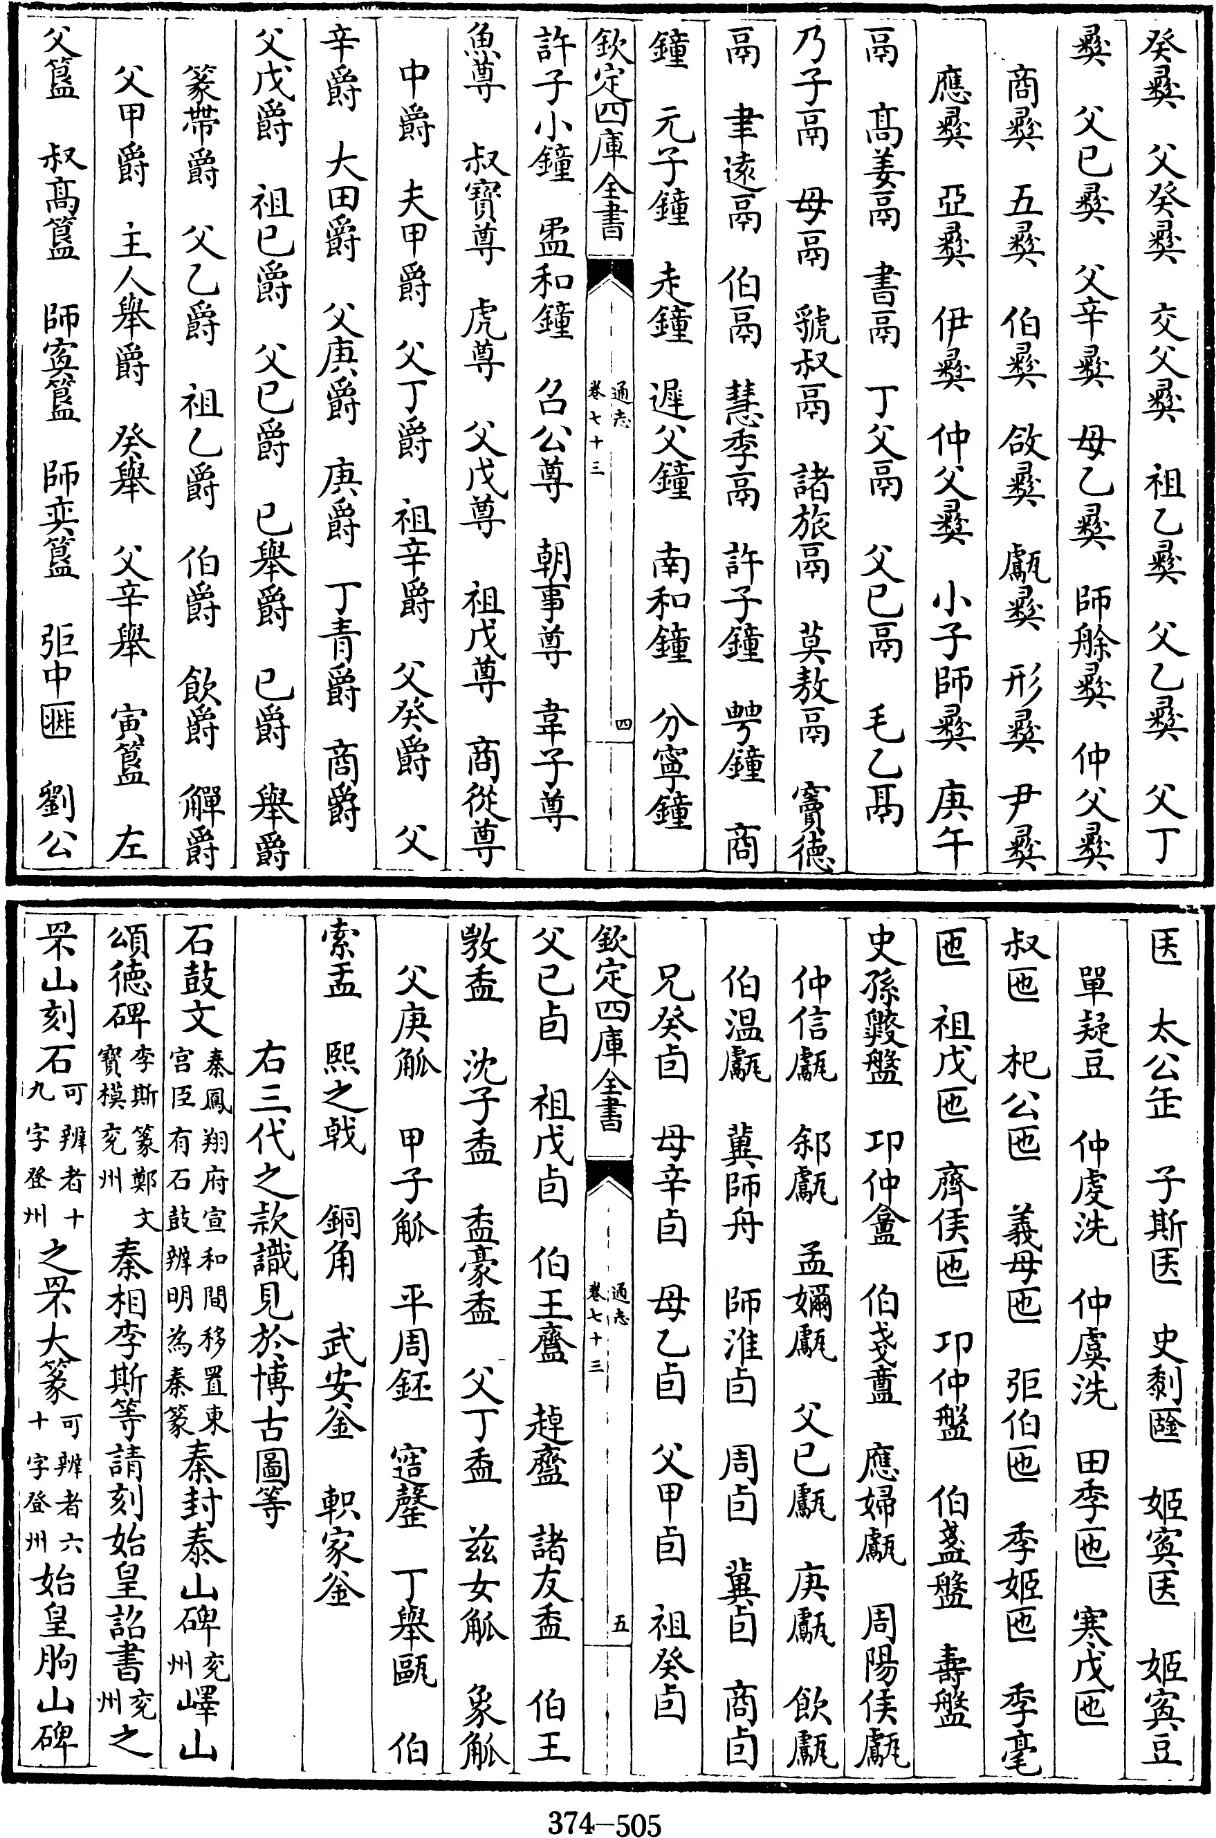 癸彝 父癸彝 交父彝 祖乙彝 父乙彝 父丁
彝 父已彝 父辛彝 母乙彝 師艅彝 仲父彝
商彝 五彝 伯彝 㪉彝 甗彝 形彝 尹彝
應彝 亞彝 伊彝 仲父彝 小子師彝 庚午
鬲 髙姜鬲 書鬲 丁父鬲 父已鬲 毛乙鬲
乃子鬲 母鬲 虢叔鬲 諸旅鬲 莫敖鬲 竇德
鬲 聿遠鬲 伯鬲 慧季鬲 許子鐘 㽬鐘 商
鐘 元子鐘 走鐘 遲父鐘 南和鐘 分寧鐘
欽定四庫全書 通志 卷七十三 四
許子小鐘 盄和鐘 召公尊 朝事尊 韋子尊
魚尊 叔寶尊 虎尊 父戊尊 祖戊尊 商從尊
中爵 夫甲爵 父丁爵 祖辛爵 父癸爵 父
辛爵 大田爵 父庚爵 庚爵 丁青爵 商爵
父戊爵 祖已爵 父已爵 已舉爵 已爵 舉爵
篆帶爵 父乙爵 祖乙爵 伯爵 飲爵 觶爵
父甲爵 主人舉爵 癸舉 父辛舉 寅簋 左
父簋 叔髙簋 師寏簋 師奕簋 弡中匪 劉公
医 太公缶 子斯医 史剩 姬寏医 姬寏豆
單疑豆 仲䖍洗 仲虞洗 田季匜 寒戊匜
叔匜 杞公匜 義母匜 弡伯匜 季姬匜 季亳
匜 祖戊匜 齊侯匜 卭仲盤 伯盞盤 壽盤
史孫盤 卭仲盦 伯戔 應婦甗 周陽侯甗
仲信甗 甗 孟嬭甗 父已甗 庚甗 飲甗
伯温甗 冀師舟 師淮卣 周卣 冀卣 商卣
兄癸卣 母辛卣 母乙卣 父甲卣 祖癸卣
欽定四庫全書 通志 卷七十三 五
父已卣 祖戊卣 伯王盉 趠盉 諸友盉 伯王
敦盉 沈子盉 盉豪盉 父丁盉 兹女觚 象觚
父庚觚 甲子觚 平周鉟 窖磬 丁舉甌 伯
索盂 熙之戟 銅角 武安釜 軹家釜
右三代之款識見於博古圖等
石鼓文秦鳳翔府宣和間移置東宫臣有石鼓辨明為秦篆秦封泰山碑兖州嶧山
頌德碑李斯篆鄭文寶模兖州秦相李斯等請刻始皇詔書兖州之
罘山刻石可辨者十九字登州之罘大篆可辨者六十字登州始皇朐山碑
374-505